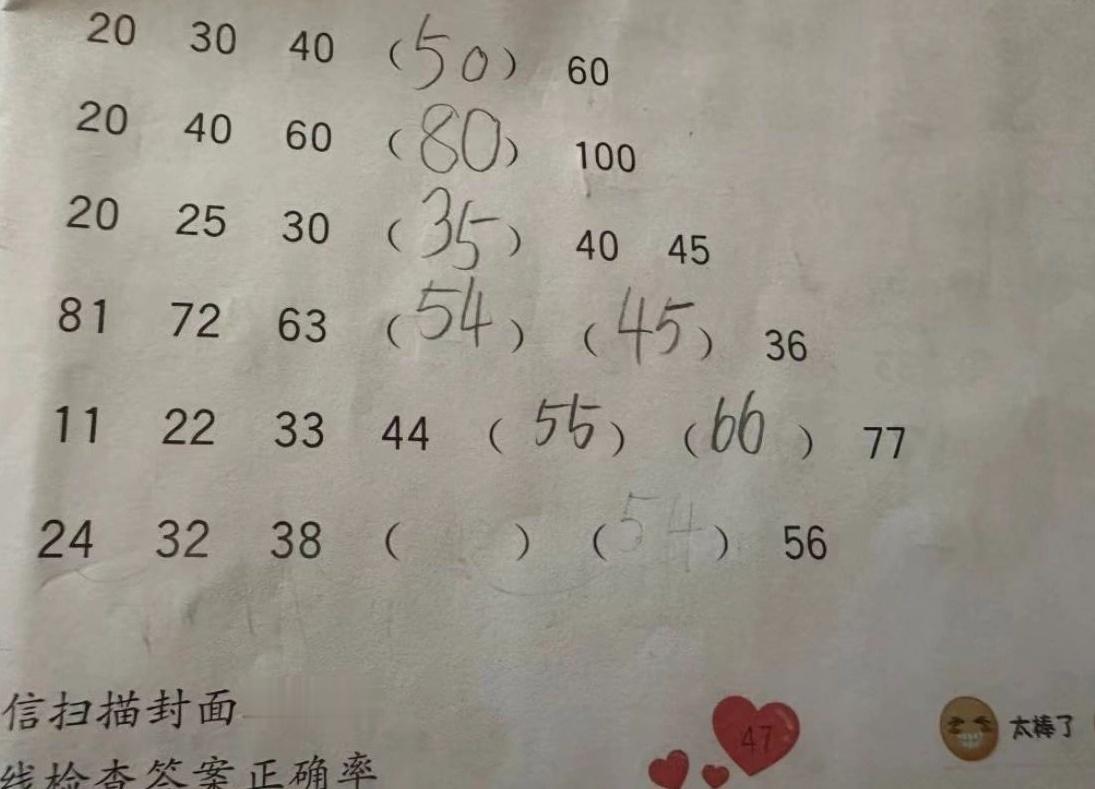 20 30 40 (50) 60
20 40 60 (80) 100
20 25 30 (35) 40 45
81 72 63 (54) (45) 36
11 22 33 44 (55) (66) 77
24 32 38 ( ) (54) 56
信扫描封面
线检查答案正确率
47
太棒了